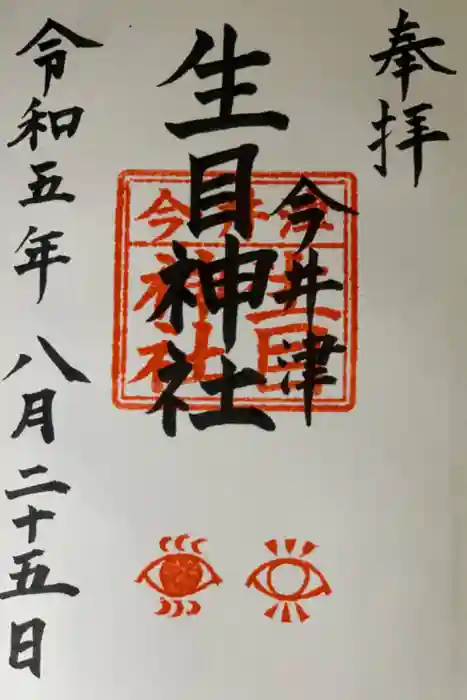 奉拝
今井津
生目神社
令和五年 八月二十五日
今井津
生目
神社